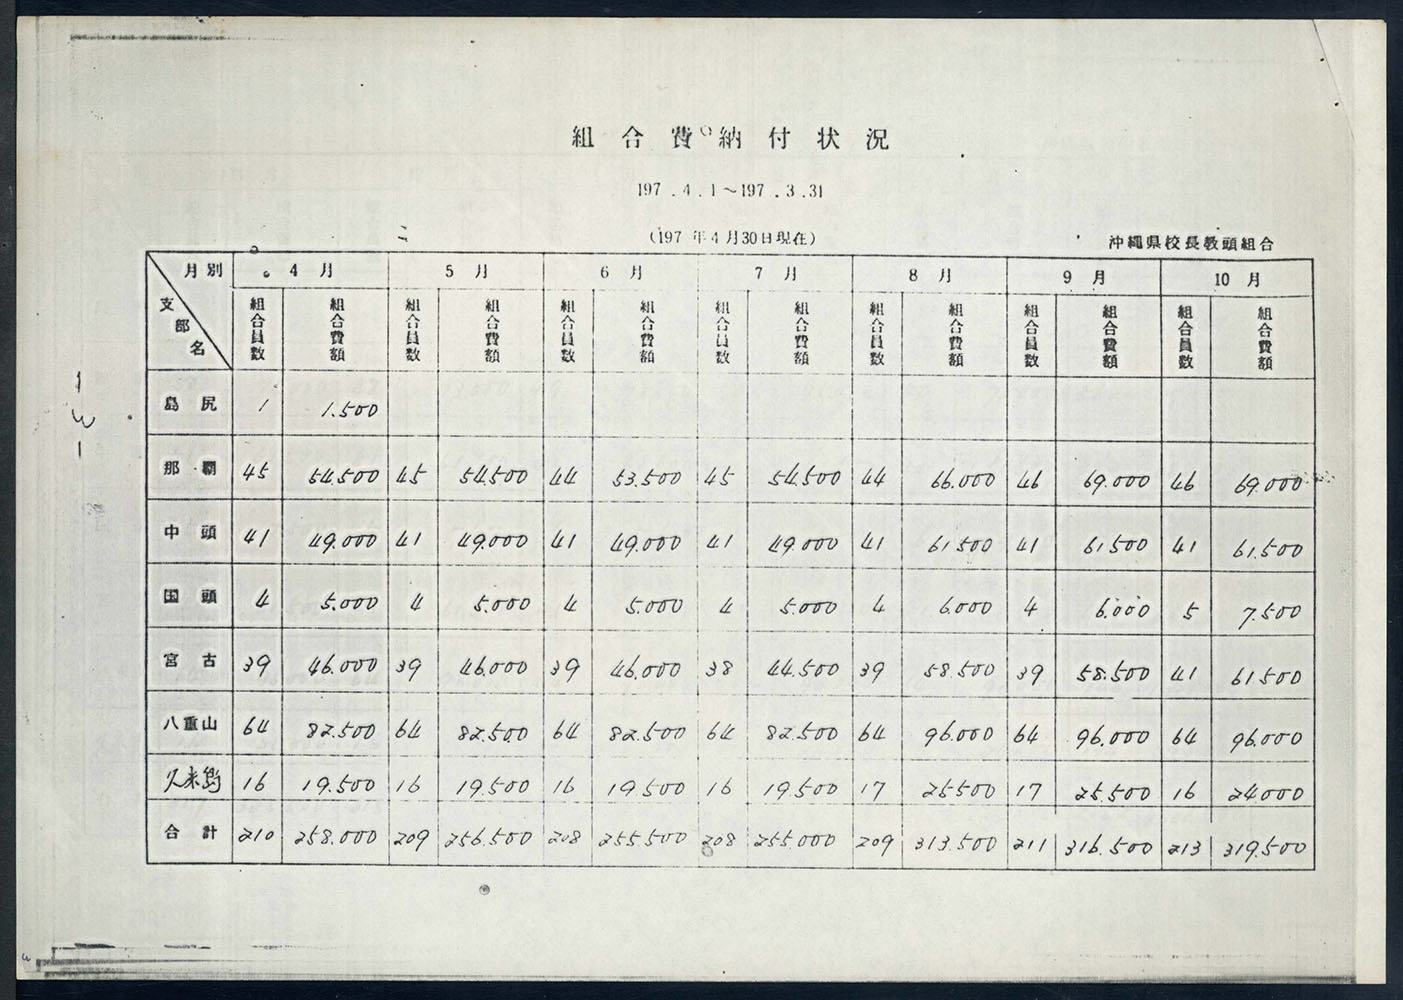 組合費納付状況
197 . 4 . 1 ～197 . 3 . 31
(197 年4月30日現在)
沖縄県校長教頭組合
月別 4月 5月 6月 7月 8月 9月 10月
支部名 組合員数 組合費額 組合員数 組合費額 組合員数 組合費額 組合員数 組合費額 組合員数 組合費額 組合員数 組合費額 組合員数 組合費額
島尻 1 1.500
那覇 45 54.500 45 54.500 44 53.500 45 54.500 44 66.000 46 69.000 46 69.000
中頭 41 49.000 41 49.000 41 49.000 41 49.000 41 61.500 41 61.500 41 61.500
国頭 4 5.000 4 5.000 4 5.000 4 5.000 4 6.000 4 6.000 5 7.500
宮古 39 46.000 39 46.000 39 46.000 38 44.500 39 58.500 39 58.500 41 61.500
八重山 64 82.500 64 82.500 64 82.500 64 82.500 64 96.000 64 96.000 64 96.000
久米島 16 19.500 16 19.500 16 19.500 16 19.500 17 25.500 17 25.500 16 24.000
合計 210 258.000 209 256.500 208 255.500 208 255.000 209 313.500 211 316.500 213 319.500
-3-